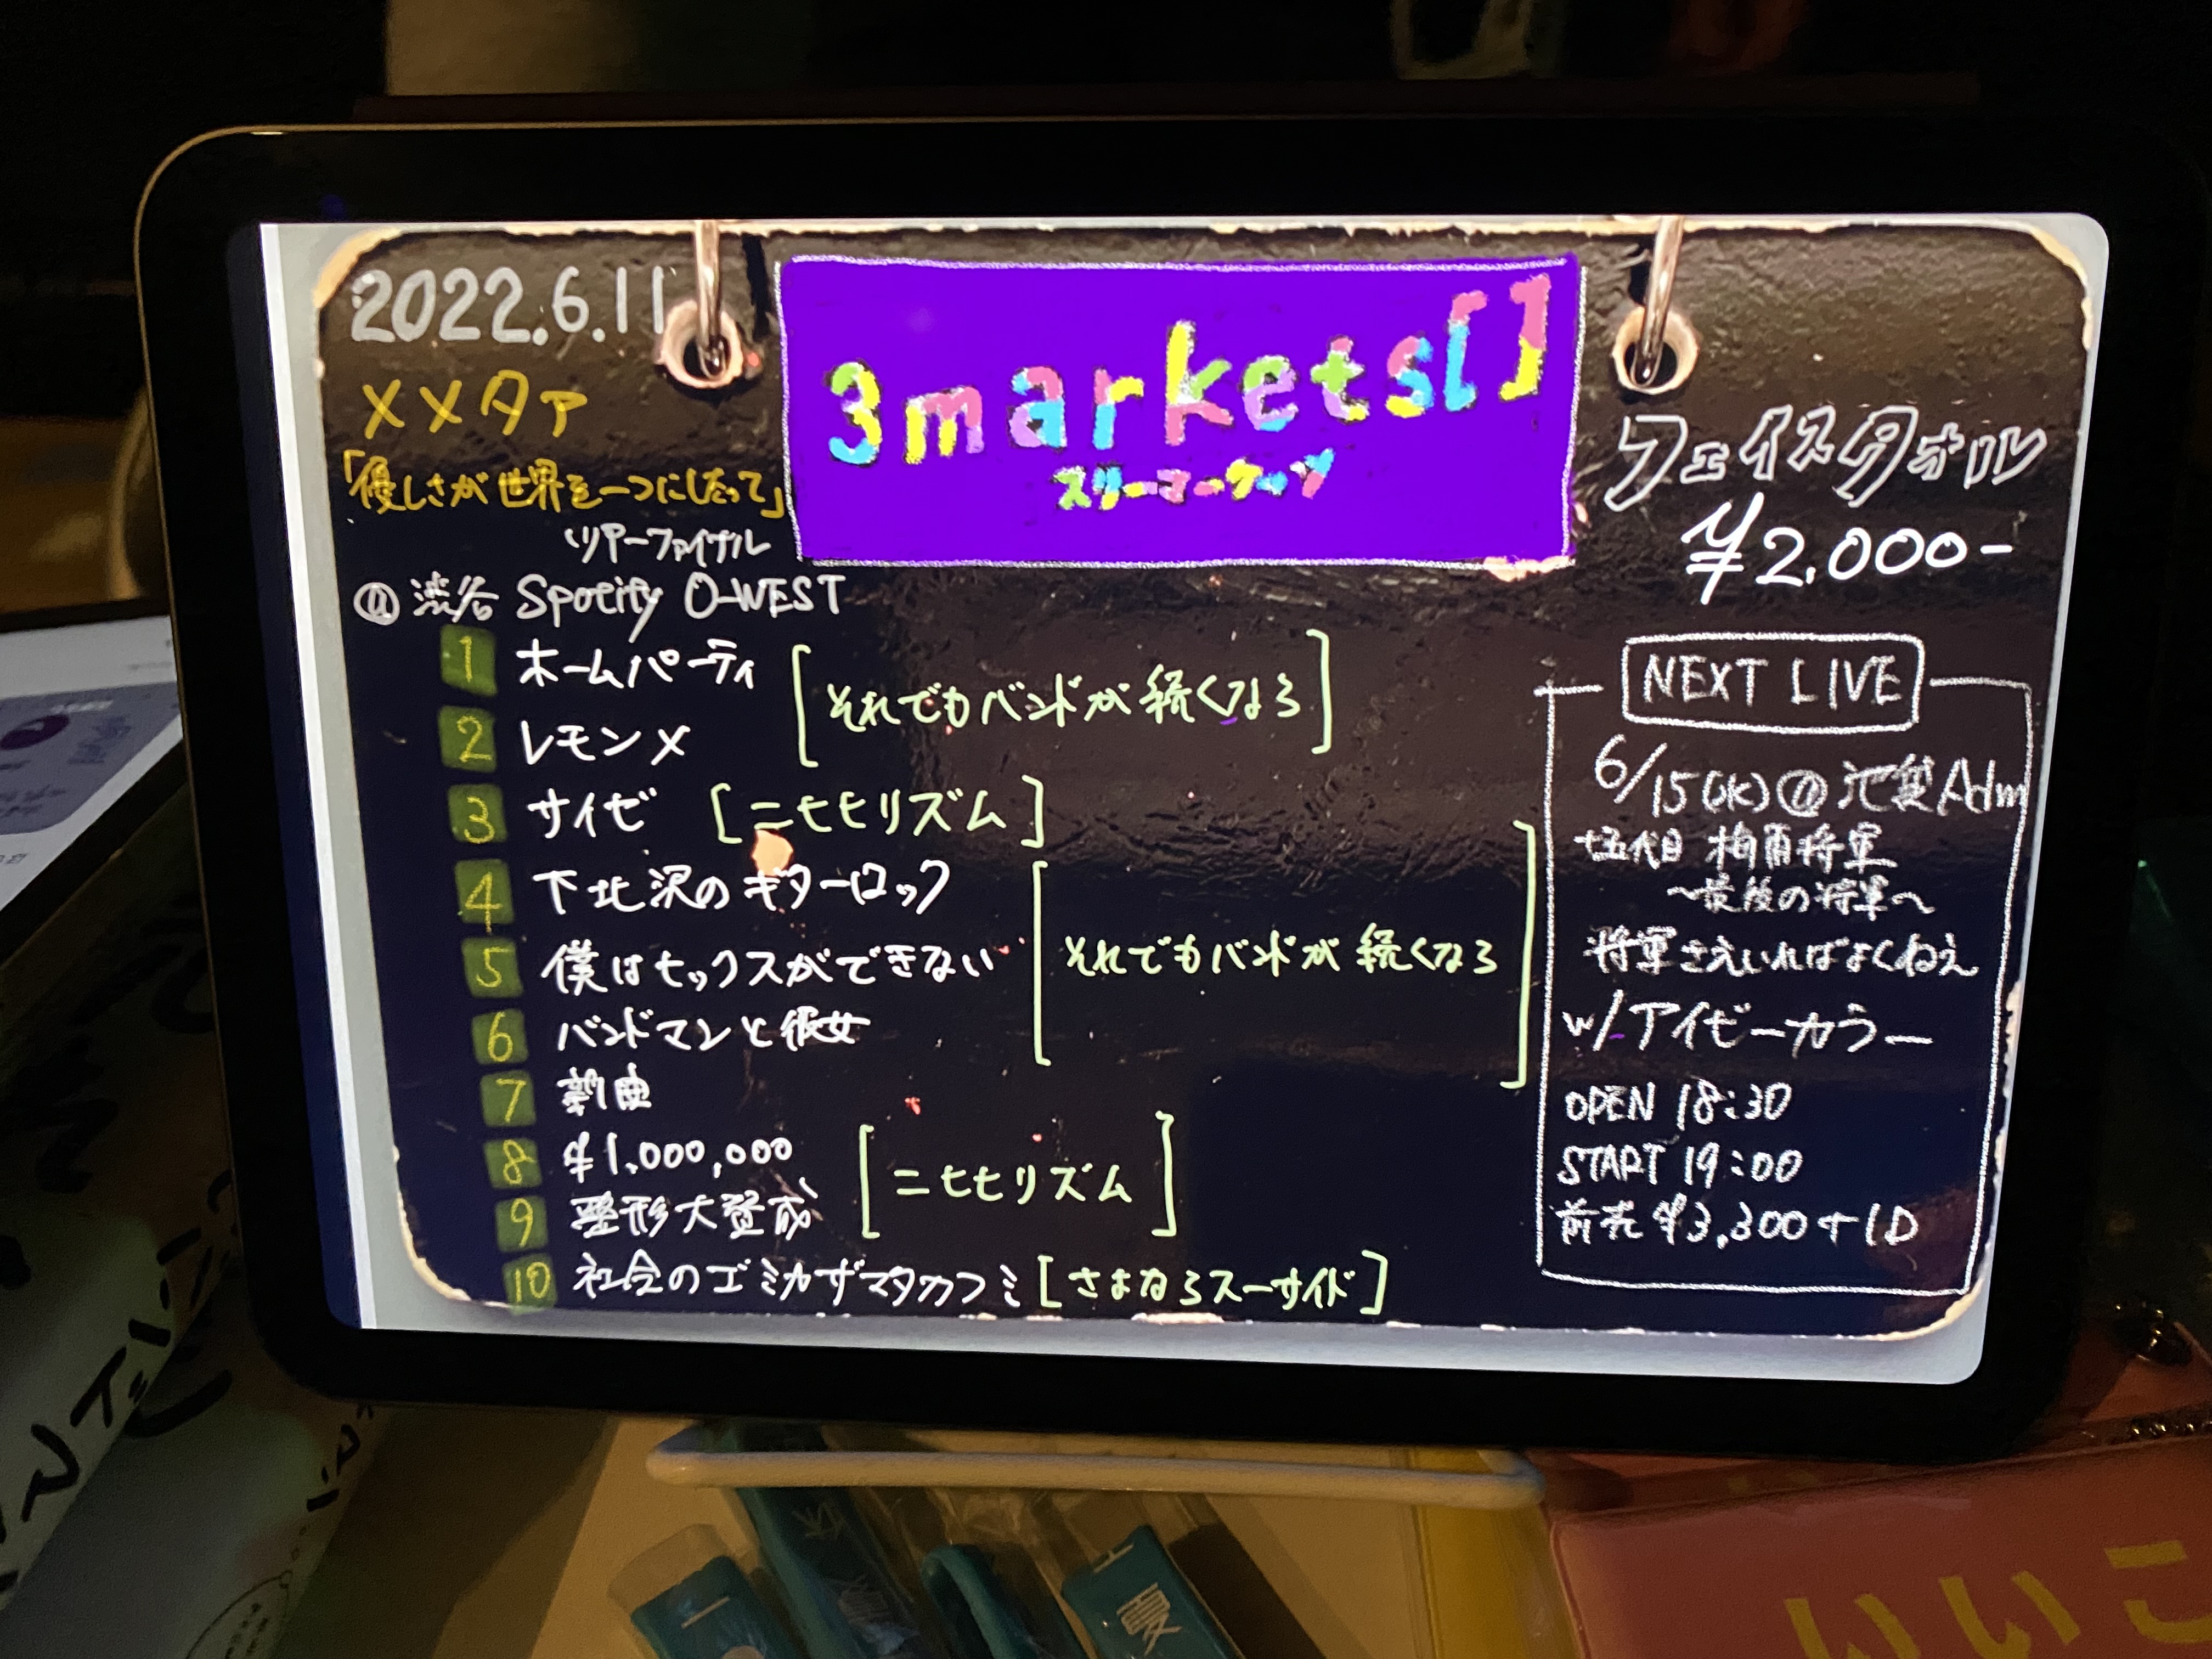 2022.6.11
メメタァ
「優しさが世界を一つにしたって」
ツアーファイナル
@渋谷 Spotify O-WEST
3markets[]
スリーマーケッツ
フェイスタオル
¥2,000-
1 ホームパーティ
2 レモン×
[それでもバンドが続くなら]
3 サイゼ [ニヒヒリズム]
4 下北沢のギターロック
5 僕はセックスができない
6 バンドマンと彼女
[それでもバンドが続くなら]
7 新曲
8 ¥1,000,000
9 整形大賛成
[ニヒヒリズム]
10 社会のゴミカザマタカフミ [さよならスーサイド]
NEXT LIVE
6/15(水)@池袋Adm
十五代目 梅雨将軍
〜最後の将軍〜
将軍さえいればよくねえ
w/アイビーカラー
OPEN 18:30
START 19:00
前売 ¥3,300+1D
いいこ